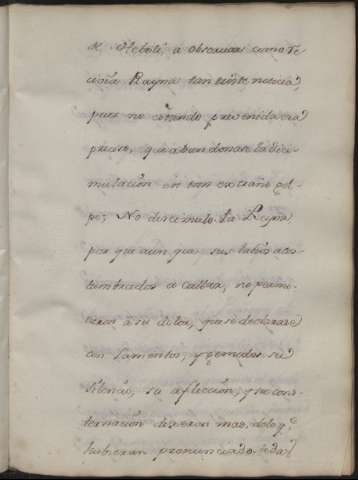 de Heboli, a observar como re-
civia Rayna tan triste noticia,
pues no estando prevenida era
preciso, que abandonase la disi-
mulacion en tan extraño gol-
pe; No disimulo la Reyna
por que aun que sus labios acos-
tumbrados a callar, no permi-
tieron a su dolor, que se declarase
con lamentos, y gemidos su
silencio, su afliccion, y su cons-
ternacion dixeron mas, de lo q.e
hubieran pronunciado